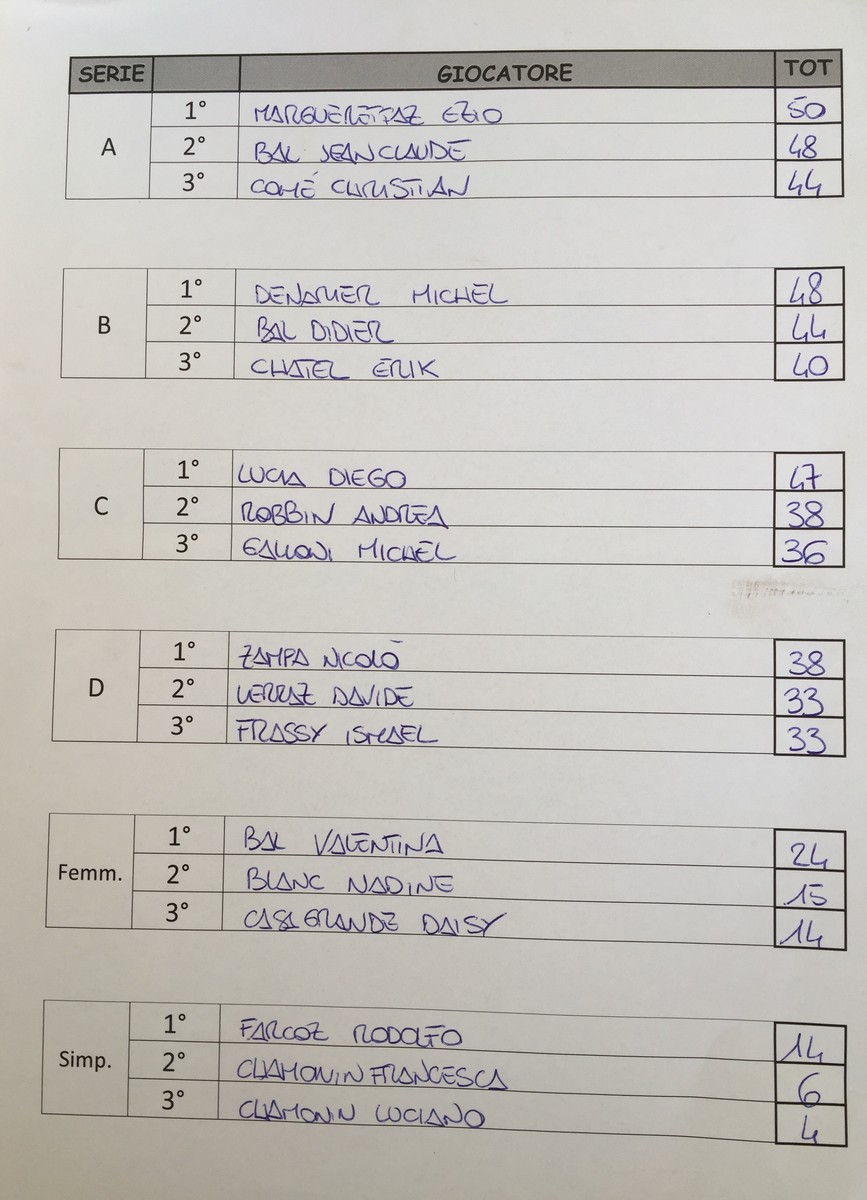 SERIE GIOCATORE TOT
A
1° MARGUERETTAZ EZIO 50
2° BAL JEANCLAUDE 48
3° COMÉ CHRISTIAN 44
B
1° DENARIER MICHEL 48
2° BAL DIDIER 44
3° CHATEL ERIK 40
C
1° LUCIA DIEGO 47
2° ROBBIN ANDREA 38
3° GALLONI MICHEL 36
D
1° ZAMPA NICOLÒ 38
2° VERRAZ DAVIDE 33
3° FRASSY ISMAEL 33
Femm.
1° BAL VALENTINA 24
2° BLANC NADINE 15
3° CASAGRANDE DAISY 14
Simp.
1° FARCOZ RODOLFO 14
2° CHAMONIN FRANCESCA 6
3° CHAMONIN LUCIANO 4